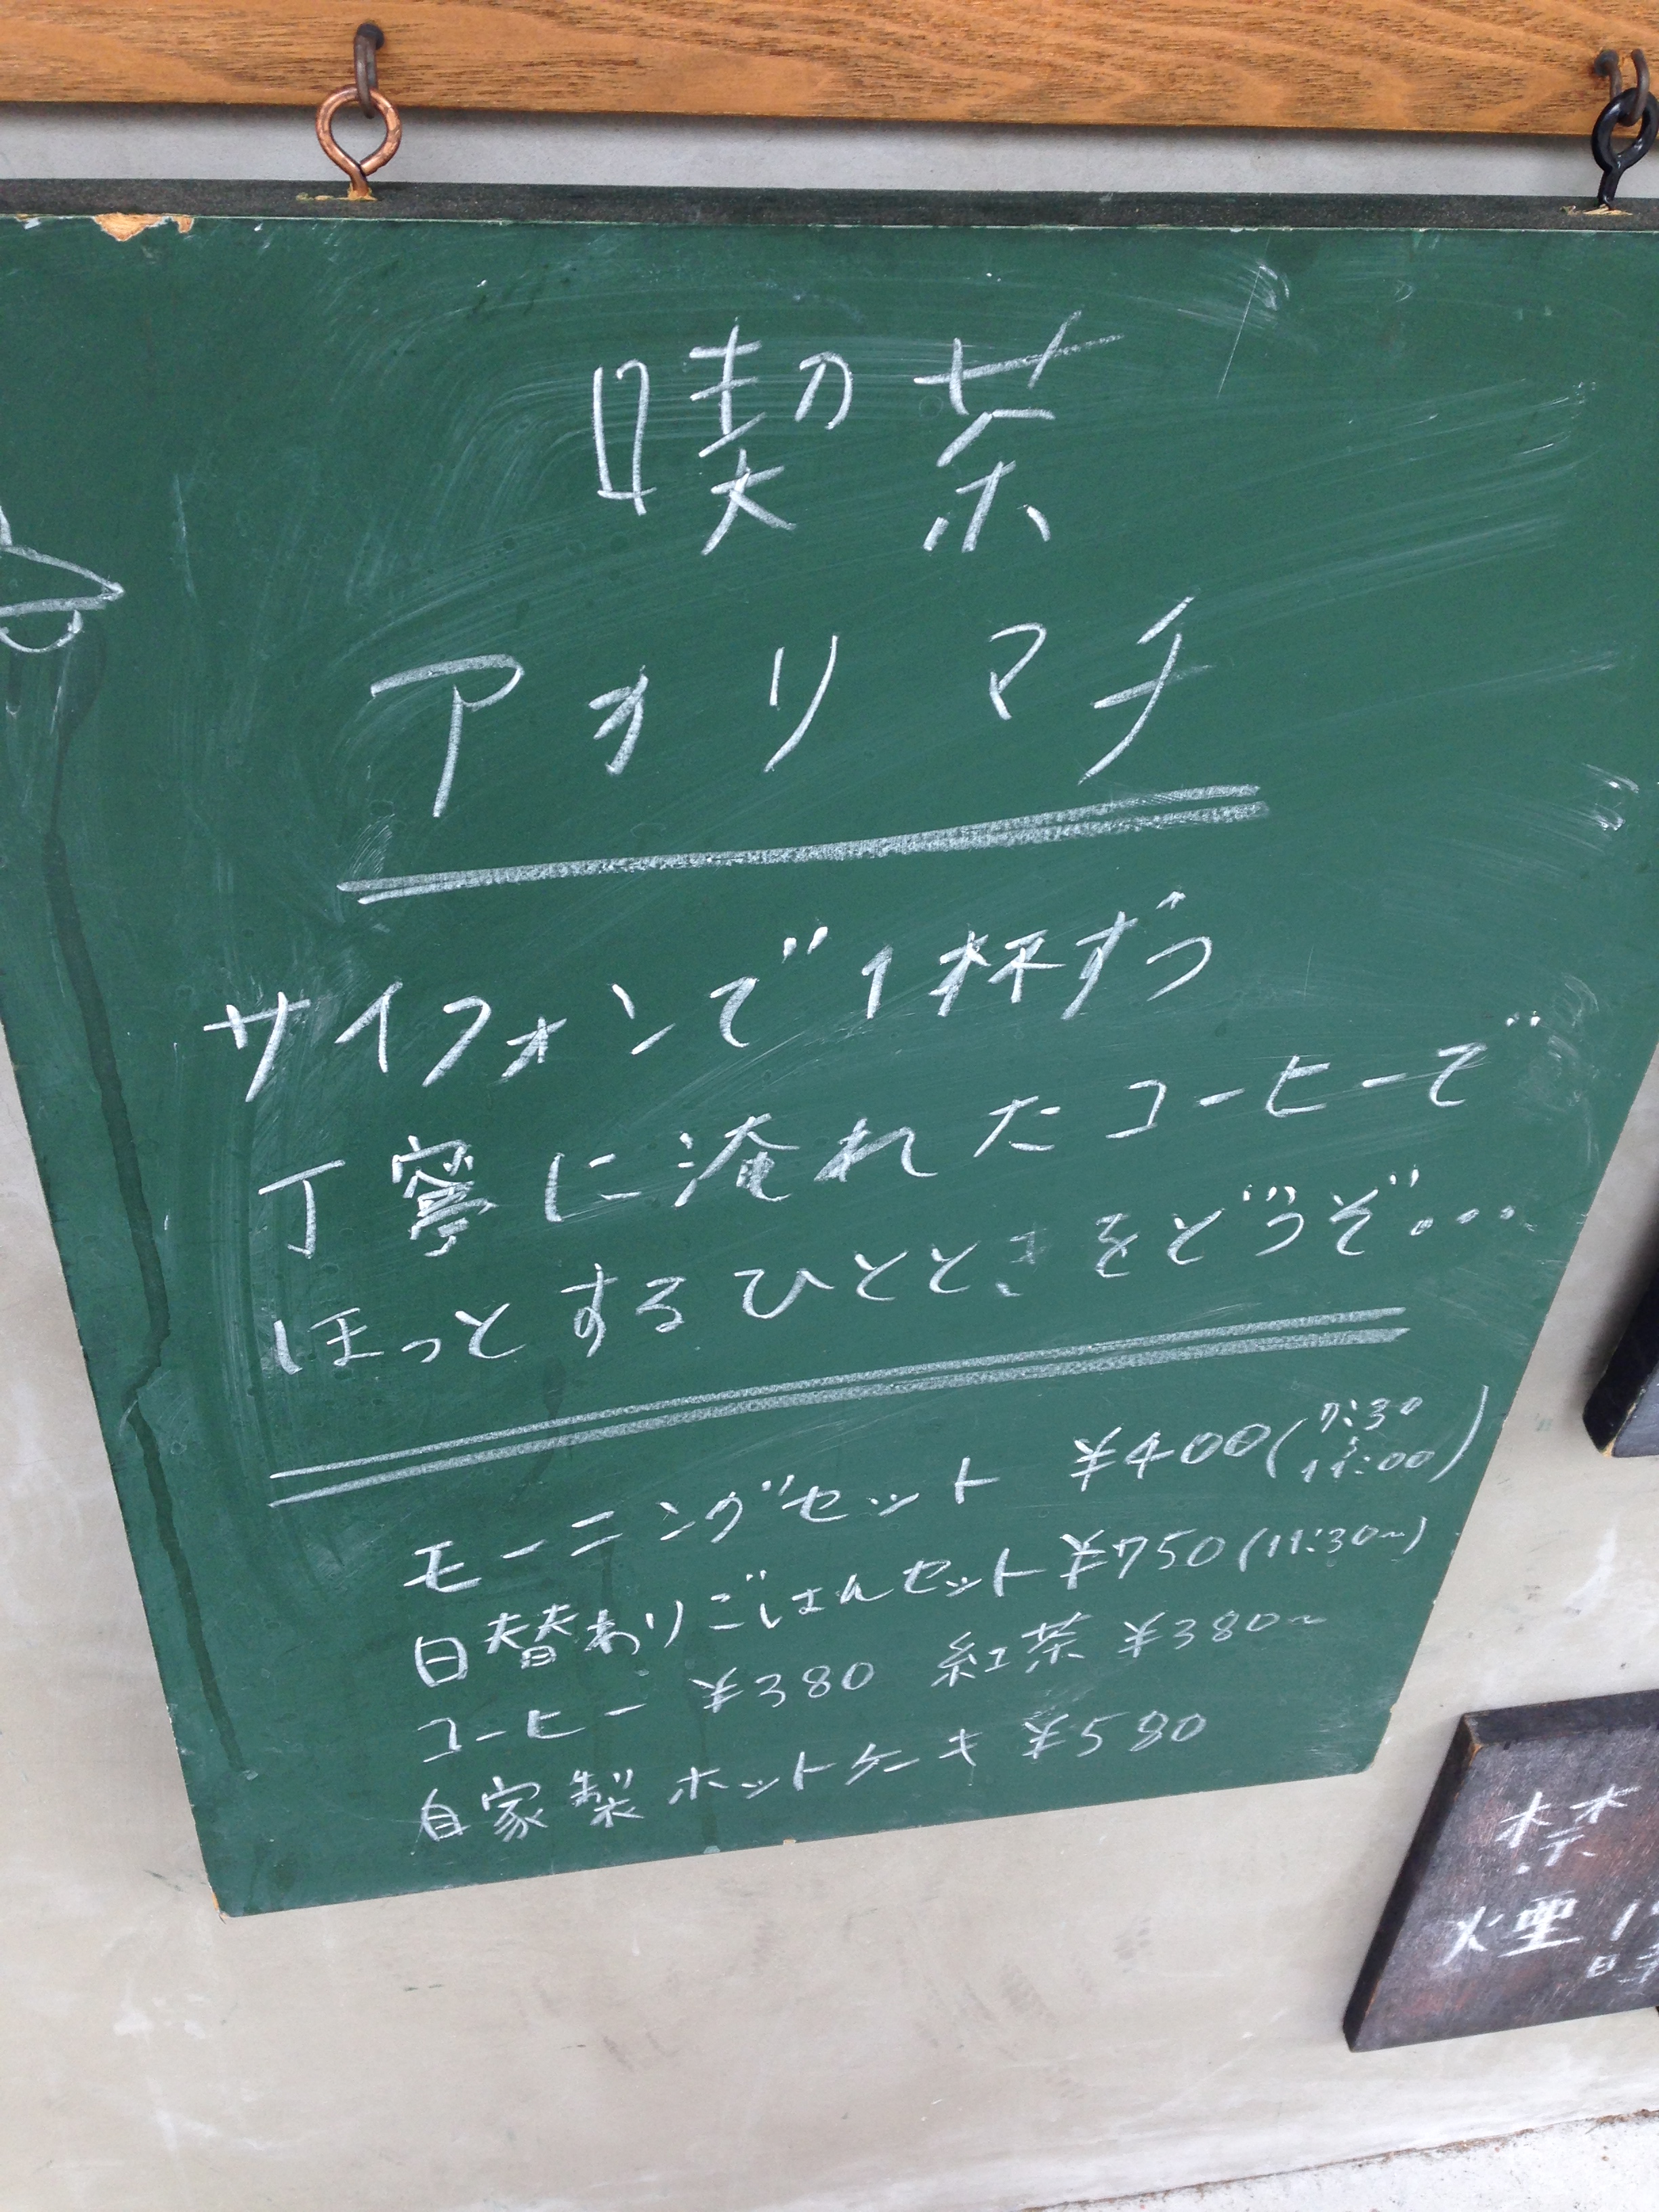 喫茶
アオリマチ
サイフォンで1杯ずつ
丁寧に淹れたコーヒーで
ほっとするひとときをどうぞ。。。
モーニングセット ¥400(7:30~11:00)
日替わりごはんセット ¥750(11:30~)
コーヒー ¥380 紅茶 ¥380~
自家製ホットケーキ ¥580
禁
煙